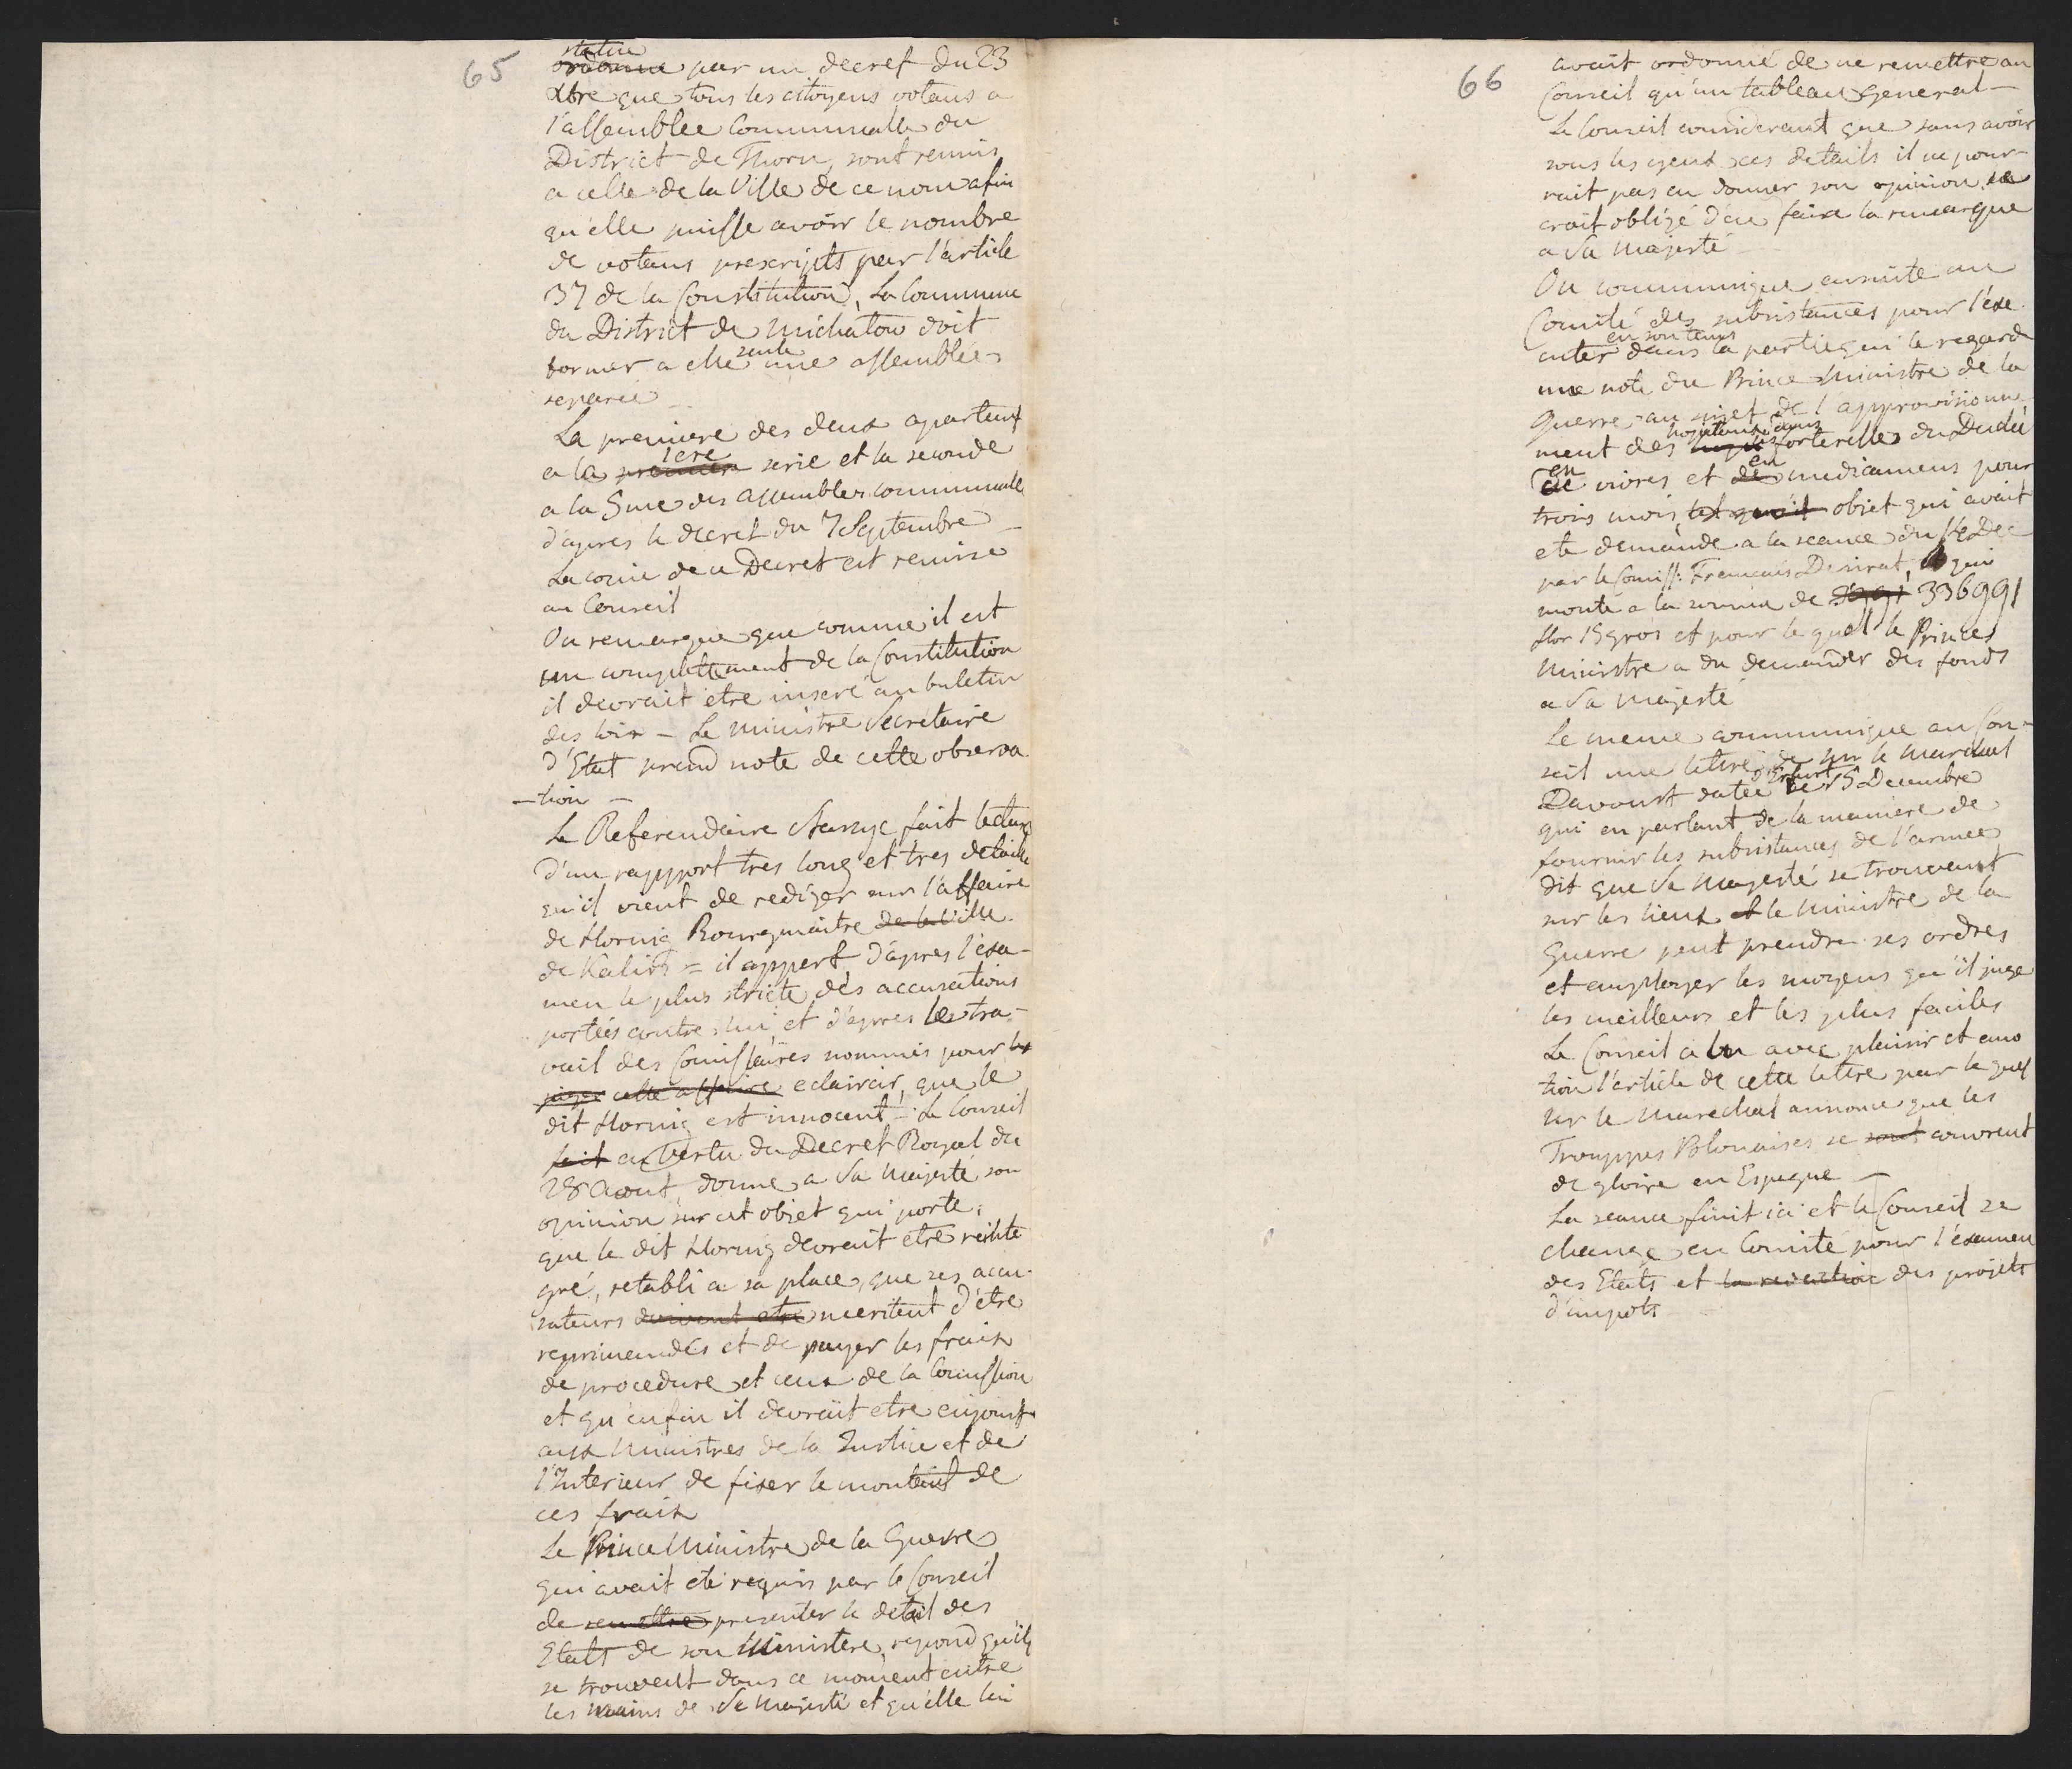 65
statue
ordonne par un decret du 23
Xbre que tous les citoyens votans a
l'assemblee Communalle du
District de Thorn, sont reunis
a celle de la Ville de ce nom afin
qu'elle puisse avoir le nombre
de votans prescripts par l'article
37 de la Constitution, La Commune
du District de Michalow doit
seule
former a elle une assemblée
separée
La premiere des deux apartient
1ere
a la premiere serie et la seconde
a la 5me des assemblees communalle
d'apres le decret du 7 Septembre
La copie de ce Decret est remise
au Conseil
On remarque que comme il est
un complettement de la Constitution
il devrait etre inseré au buletin
des loix – Le Ministre Secretaire
d'Etat prend note de cette observa
–tion –
Le Referendaire fait lecture
d'un rapport tres long et tres detaillé
qu'il vient de rediger sur l'affaire
de Hornig Bourgmaitre de la Ville
de Kalish = il appert d'apres l'exa-
men le plus stricte des accusations
portées contre lui et d'apres les tra-
vail des Comissaires nommés pour les
juger cette affaire eclaircir, que le
dit Hornig est innocent – Le Conseil
fait en vertu du Decret Royal du
28 Aout, donne a Sa Majesté son
opinion sur cet objet qui porte,
que le dit Hornig devrait etre reinte
gré, retabli a sa place, que ses accu-
sateurs doivent etre meritent d'etre
reprimendés et de payer les fraix
de procedure et ceux de la Comission
et qu'enfin il devrait etre enjoint
aux Ministres de la Justice et de
l'Interieur de fixer le montant de
ces fraix
Le Prince Ministre de la Guerre
qui avait eté requis par le Conseil
de remettre presenter le detail des
Etats de son Ministere, repond qu'ils
se trouvent dans ce moment entre
les mains de Sa Majesté et qu'elle lui
66
avait ordonné de ne remettre au
Conseil qu'un tableau general –
Le Conseil considerant que sans avoir
sous les yeux ces details il ne pour-
rait pas en donner son opinion, se
croit obligé d'en faire la remarque
a Sa Majesté
On communique ensuite au
Comité des subsistances pour l'exe
en son tems
cuter dans la partie qui le regarde
une note du Prince Ministre de la
Guerre au sujet de l'approvisionne-
hopitaux dans
ment des les forteresses du Duché
en en
de vivres et de medicamens pour
trois mois, objet qui avait
ete demandé a la seance du Dec
par le Comiss: Francais Desirat, qui
monte a la somme de 336991
flor 15 gros et pour lequel le Prince
Ministre a du demander des fonds
a Sa Majesté
Le meme communique au Con-
seil une lettre de Mr le Marechal
d'Erfurt
Davoust datée le 15 Decembre
qui en parlant de la maniere de
fournir les subsistances de l'armée
dit que Sa Majesté se trouvant
sur les lieux et le Ministre de la
Guerre peut prendre ses ordres
et employer les moyens qu'il juge
les meilleurs et les plus faciles
Le Conseil a lu avec plaisir et emo
tion l'article de cette lettre par lequel
Mr le Marechal annonce que les
Trouppes Polonaises se sont couvrent
de gloire en Espagne –
La seance finit ici et le Conseil se
change en Comité pour l'examen
des Etats et la redaction des projets
d'impots